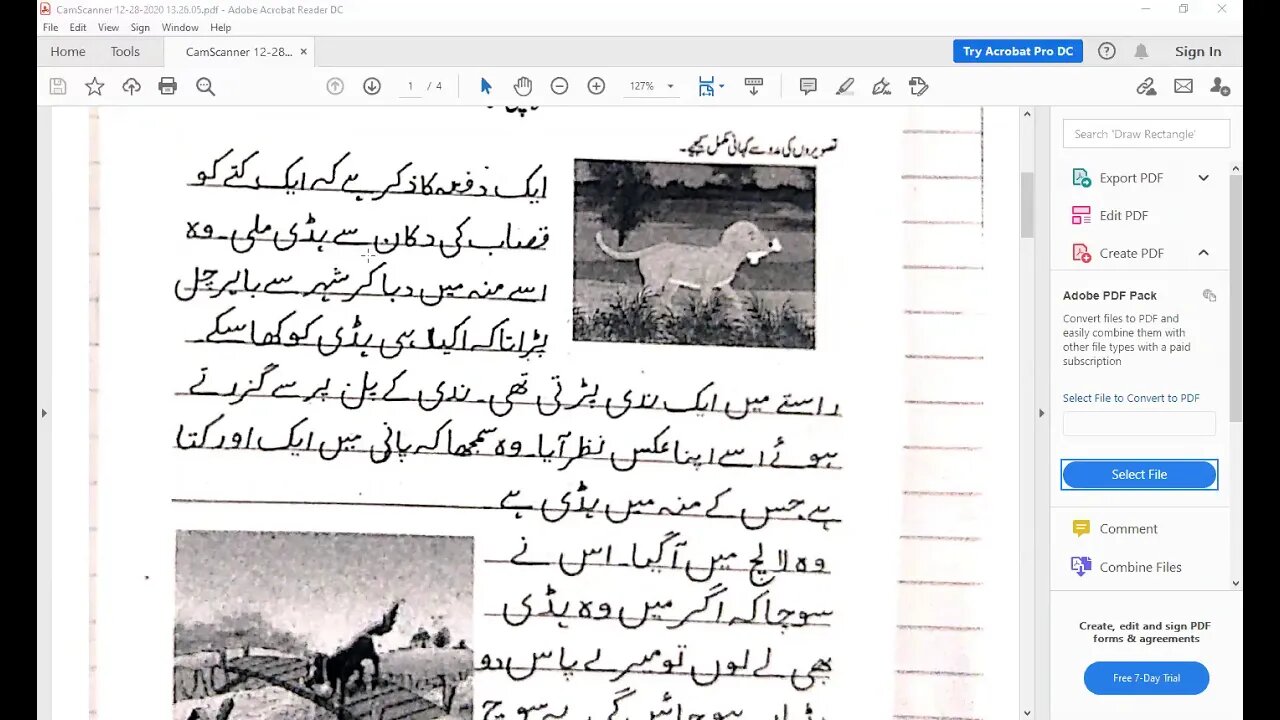 CamScanner 12-28-2020 13.26.05.pdf - Adobe Acrobat Reader DC
File Edit View Sign Window Help
Home Tools CamScanner 12-28... × Try Acrobat Pro DC Sign In
1 / 4 127%
تصویروں کی مدد سے کہانی مکمل کیجیے۔
ایک دفعہ کا ذکر ہے کہ ایک کتے کو
قصاب کی دکان سے ہڈی ملی۔ وہ
اسے منہ میں دبا کر شہر سے باہر چل
پڑا تاکہ اکیلا ہی ہڈی کو کھا سکے۔
راستے میں ایک ندی پڑتی تھی۔ ندی کے پل پر سے گزرتے
ہوئے اسے اپنا عکس نظر آیا۔ وہ سمجھا کہ پانی میں ایک اور کتا
ہے جس کے منہ میں ہڈی ہے
وہ لالچ میں آگیا۔ اس نے
سوچا کہ اگر میں وہ ہڈی
بھی لے لوں تو میرے پاس دو
Search 'Draw Rectangle
Export PDF
Edit PDF
Create PDF
Adobe PDF Pack
Convert files to PDF and
easily combine them with
other file types with a paid
subscription
Select File to Convert to PDF
Select File
Comment
Combine Files
Create, edit and sign PDF
forms & agreements
Free 7-Day Trial